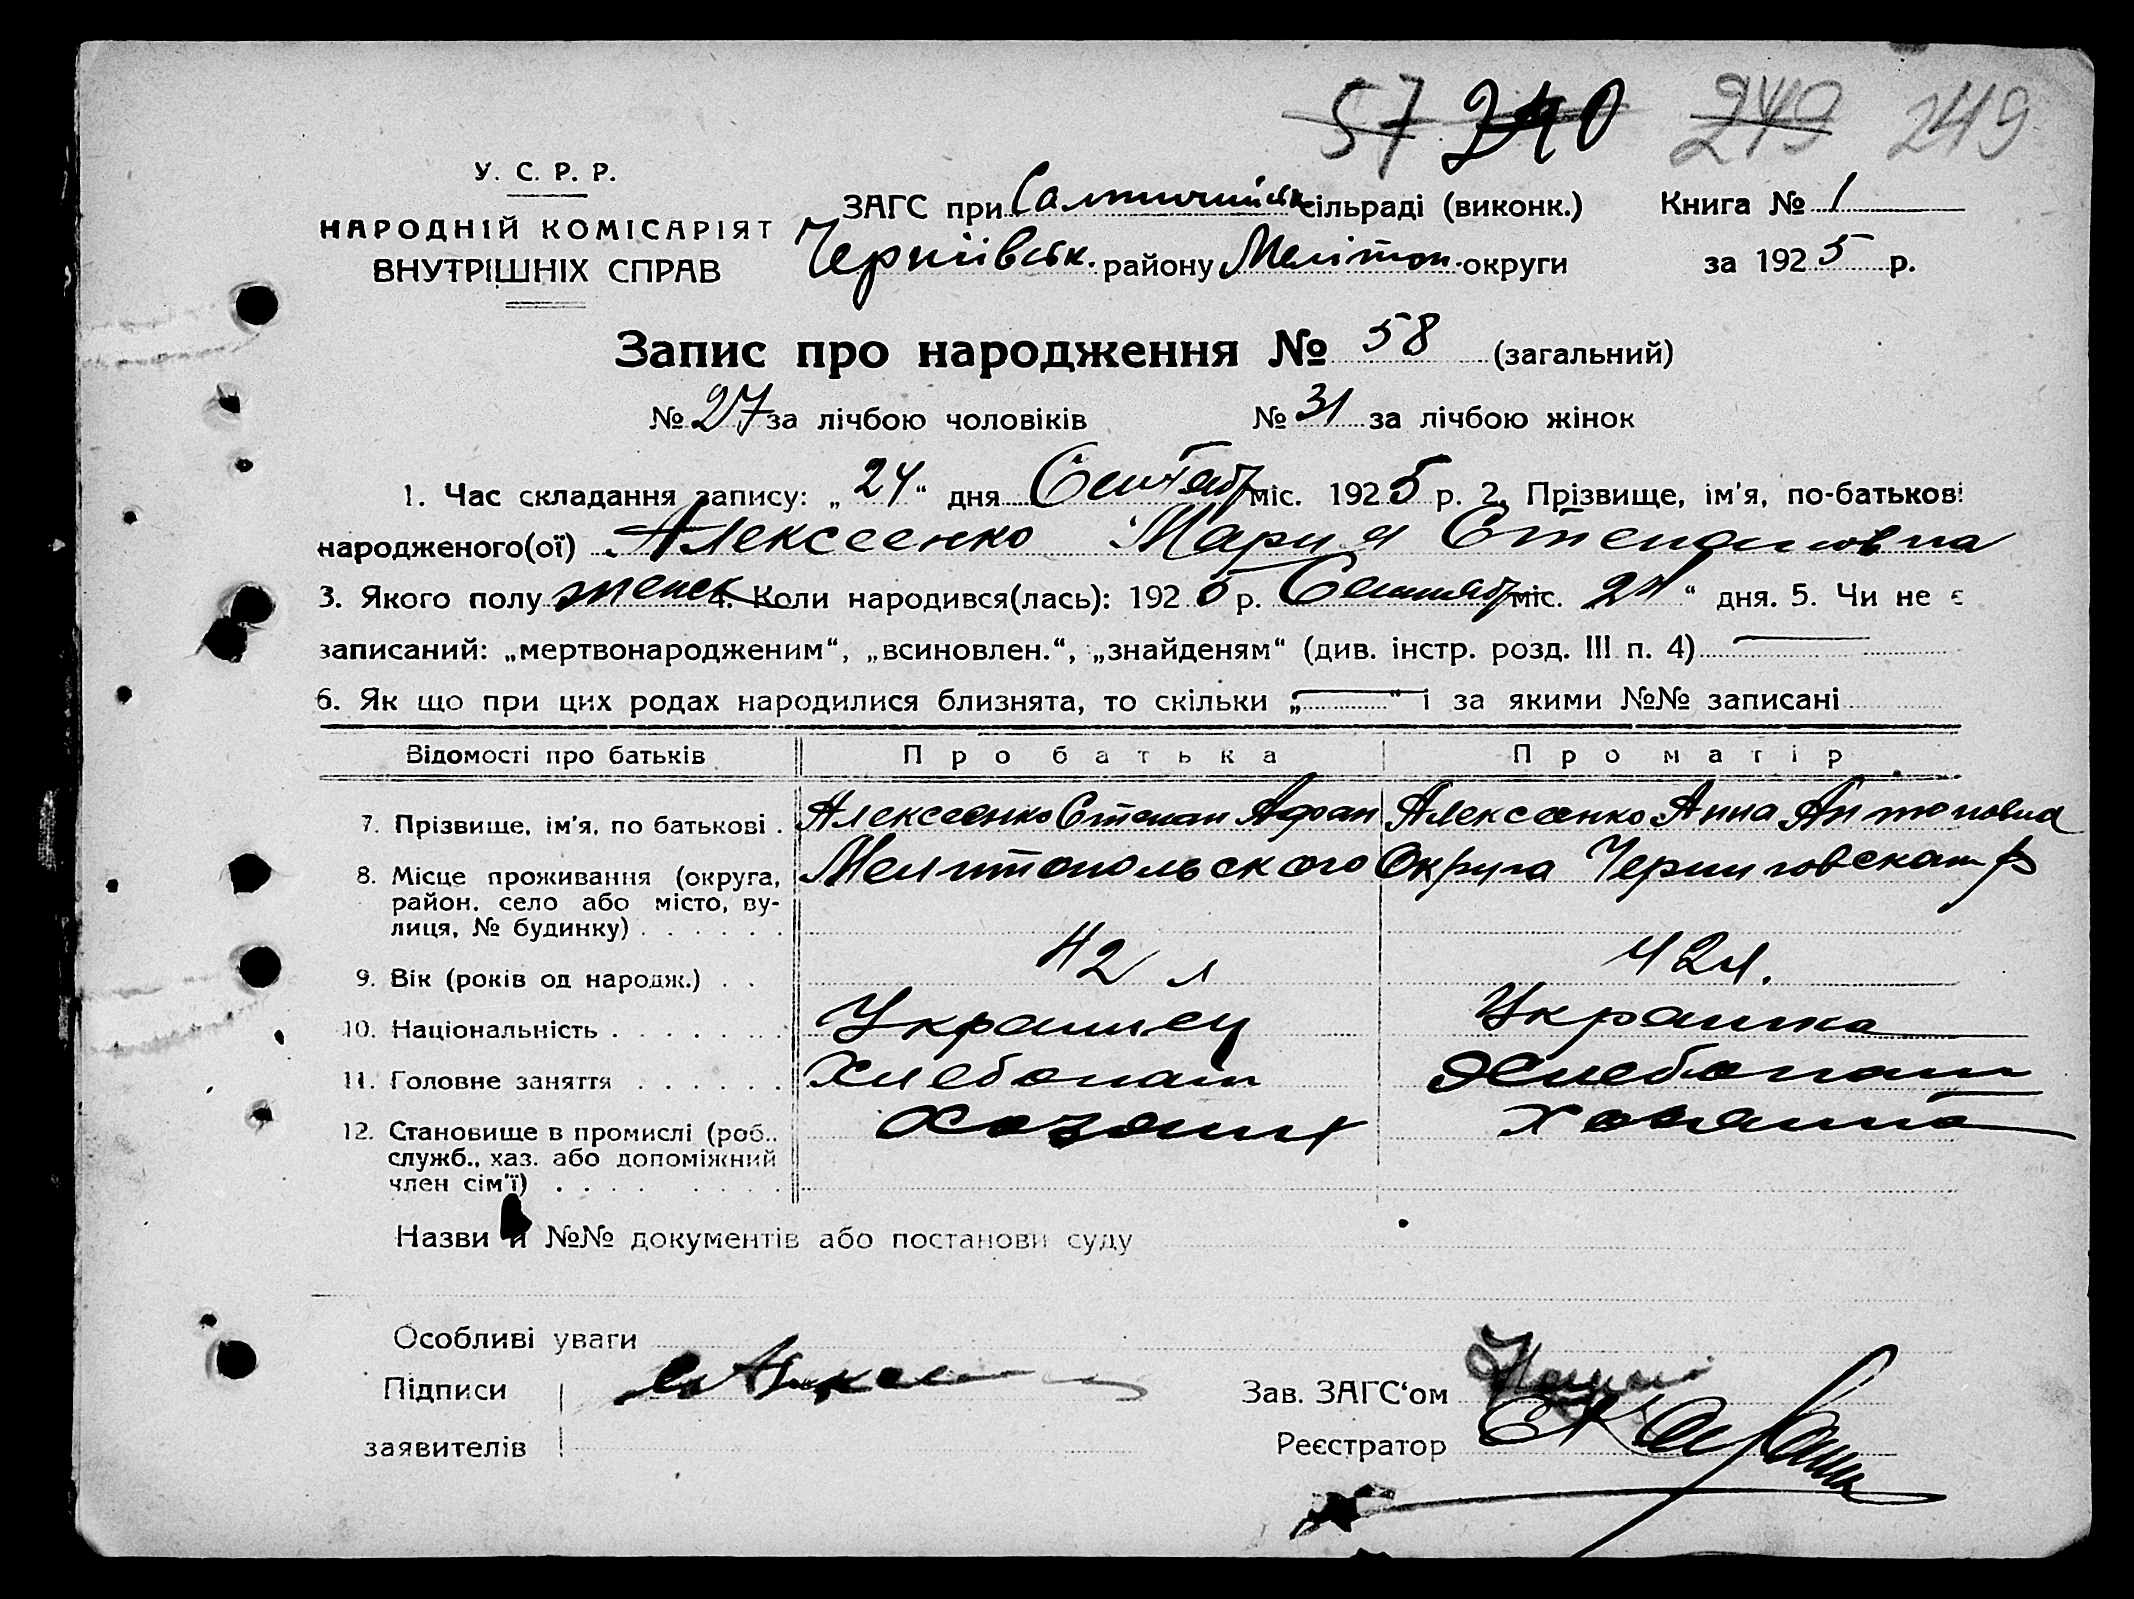 57 240 249 249
У. С. Р. Р.
НАРОДНІЙ КОМІСАРІЯТ
ВНУТРІШНІХ СПРАВ
ЗАГС при Салтичийськ сільраді (виконк.) Книга № 1
Чернівськ. району Мелітоп. округи за 1925 р.
Запис про народження № 58 (загальний)
№ 27 за лічбою чоловіків № 31 за лічбою жінок
1. Час складання запису: „24“ дня Сентябр міс. 1925 р. 2. Прізвище, ім'я, по-батькові
народженого(ої) Алексеенко Мария Степановна
3. Якого полу женск 4. Коли народився(лась): 1925 р. Сентябр міс. 24“ дня. 5. Чи не є
записаний: „мертвонародженим“, „всиновлен.“, „знайденям“ (див. інстр. розд. III п. 4)
6. Як що при цих родах народилися близнята, то скільки „ “ і за якими №№ записані
Відомості про батьків Про батька Про матір
7. Прізвище, ім'я, по батькові . Алексеенко Степан Афан Алексеенко Анна Антоновна
8. Місце проживання (округа, район, село або місто, вулиця, № будинку) . . . . . . Мелитопольского Округа Черниговскаго р
9. Вік (років од народж.) . . 42 л 42 л.
10. Національність . . . . . . . Украинец Украинка
11. Головне заняття . . . . . . Хлебопаш Хлебопаш
12. Становище в промислі (роб., служб., хаз. або допоміжний член сім'ї) . . . . . . . . Хозяин Хозяйка
Назви й №№ документів або постанови суду
Особливі уваги
Підписи
заявителів
Зав. ЗАГС'ом
Реєстратор